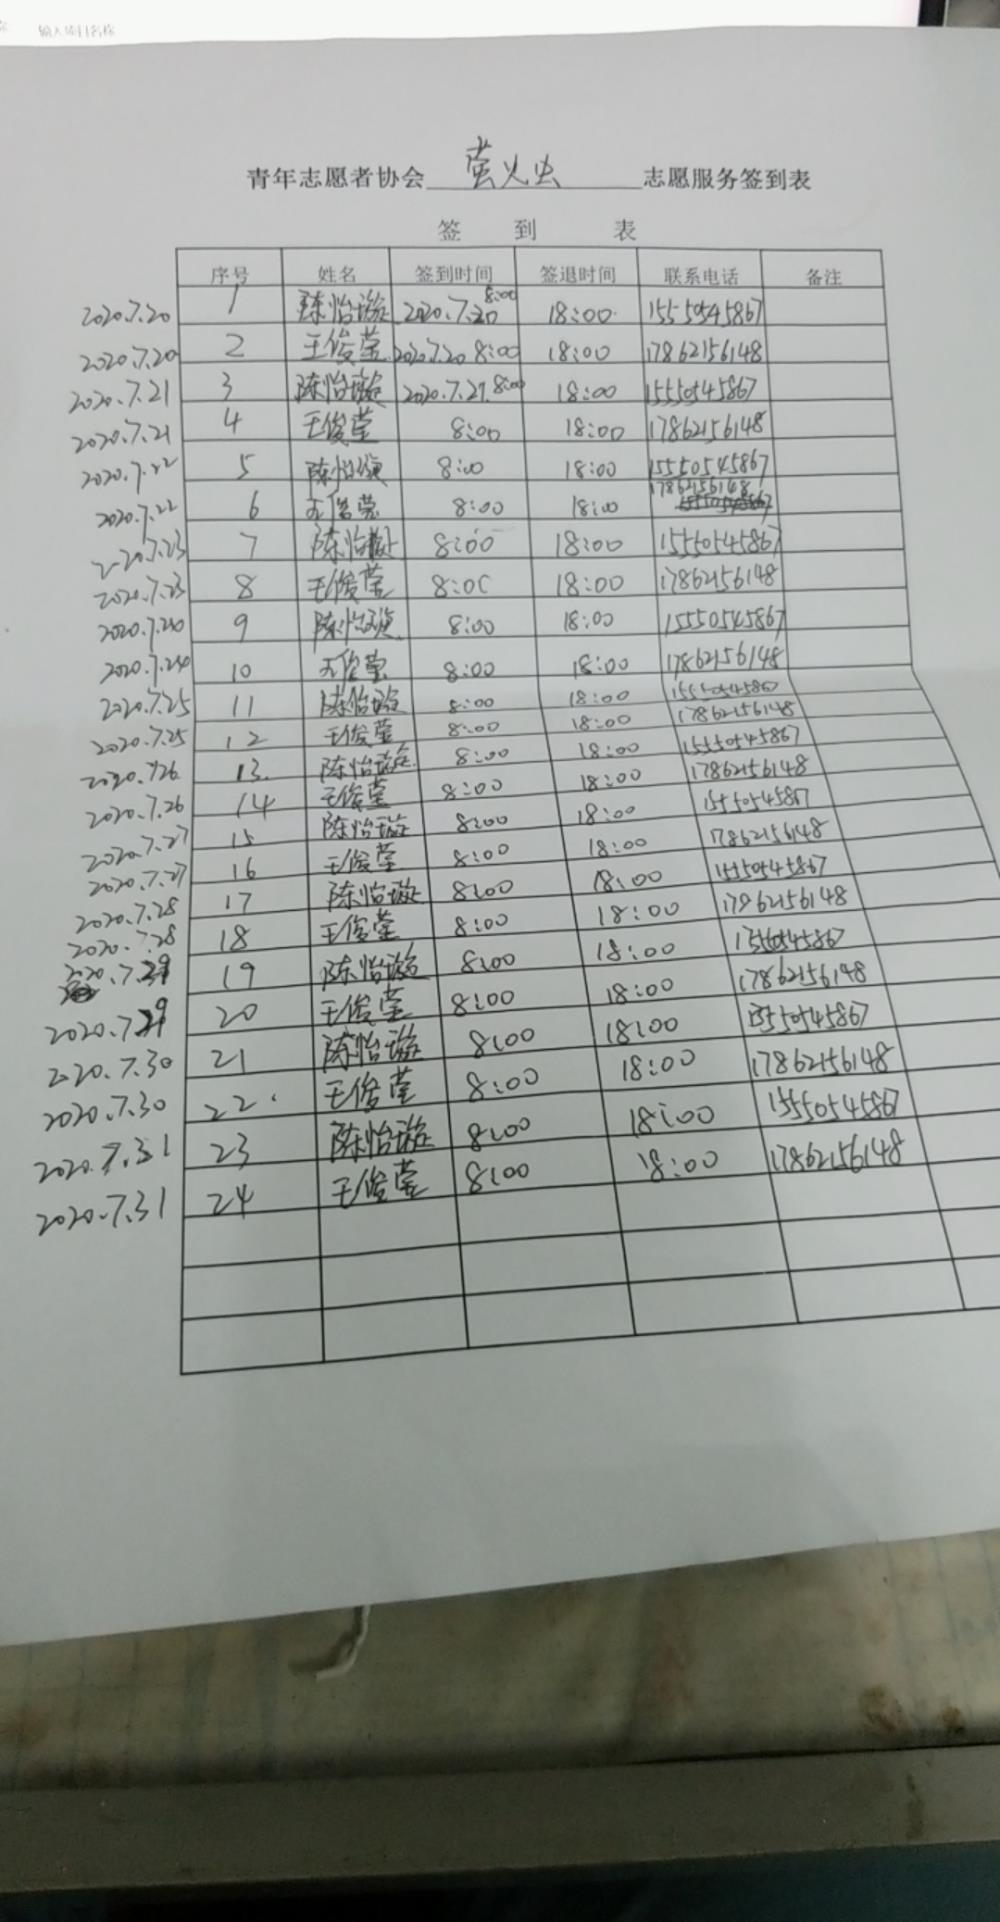 输入项目名称
青年志愿者协会 萤火虫 志愿服务签到表
签 到 表
序号 姓名 签到时间 签退时间 联系电话 备注
2020.7.20 1 陈怡璇 2020.7.20 8:00 18:00 15550545867
2020.7.20 2 王俊莹 2020.7.20 8:00 18:00 17862156148
2020.7.21 3 陈怡璇 2020.7.21.8:00 18:00 15550545867
2020.7.21 4 王俊莹 8:00 18:00 17862156148
2020.7.22 5 陈怡璇 8:00 18:00 15550545867
2020.7.22 6 王俊莹 8:00 18:00 17862156148
2020.7.23 7 陈怡璇 8:00 18:00 15550545867
2020.7.23 8 王俊莹 8:00 18:00 17862156148
2020.7.24 9 陈怡璇 8:00 18:00 15550545867
2020.7.24 10 王俊莹 8:00 18:00 17862156148
2020.7.25 11 陈怡璇 8:00 18:00 15550545867
2020.7.25 12 王俊莹 8:00 18:00 17862156148
2020.7.26 13. 陈怡璇 8:00 18:00 15550545867
2020.7.26 14 王俊莹 8:00 18:00 17862156148
2020.7.27 15 陈怡璇 8:00 18:00 15550545867
2020.7.27 16 王俊莹 8:00 18:00 17862156148
2020.7.28 17 陈怡璇 8:00 18:00 15550545867
2020.7.28 18 王俊莹 8:00 18:00 17862156148
2020.7.29 19 陈怡璇 8:00 18:00 15550545867
2020.7.29 20 王俊莹 8:00 18:00 17862156148
2020.7.30 21 陈怡璇 8:00 18:00 15550545867
2020.7.30 22. 王俊莹 8:00 18:00 17862156148
2020.7.31 23 陈怡璇 8:00 18:00 15550545867
2020.7.31 24 王俊莹 8:00 18:00 17862156148